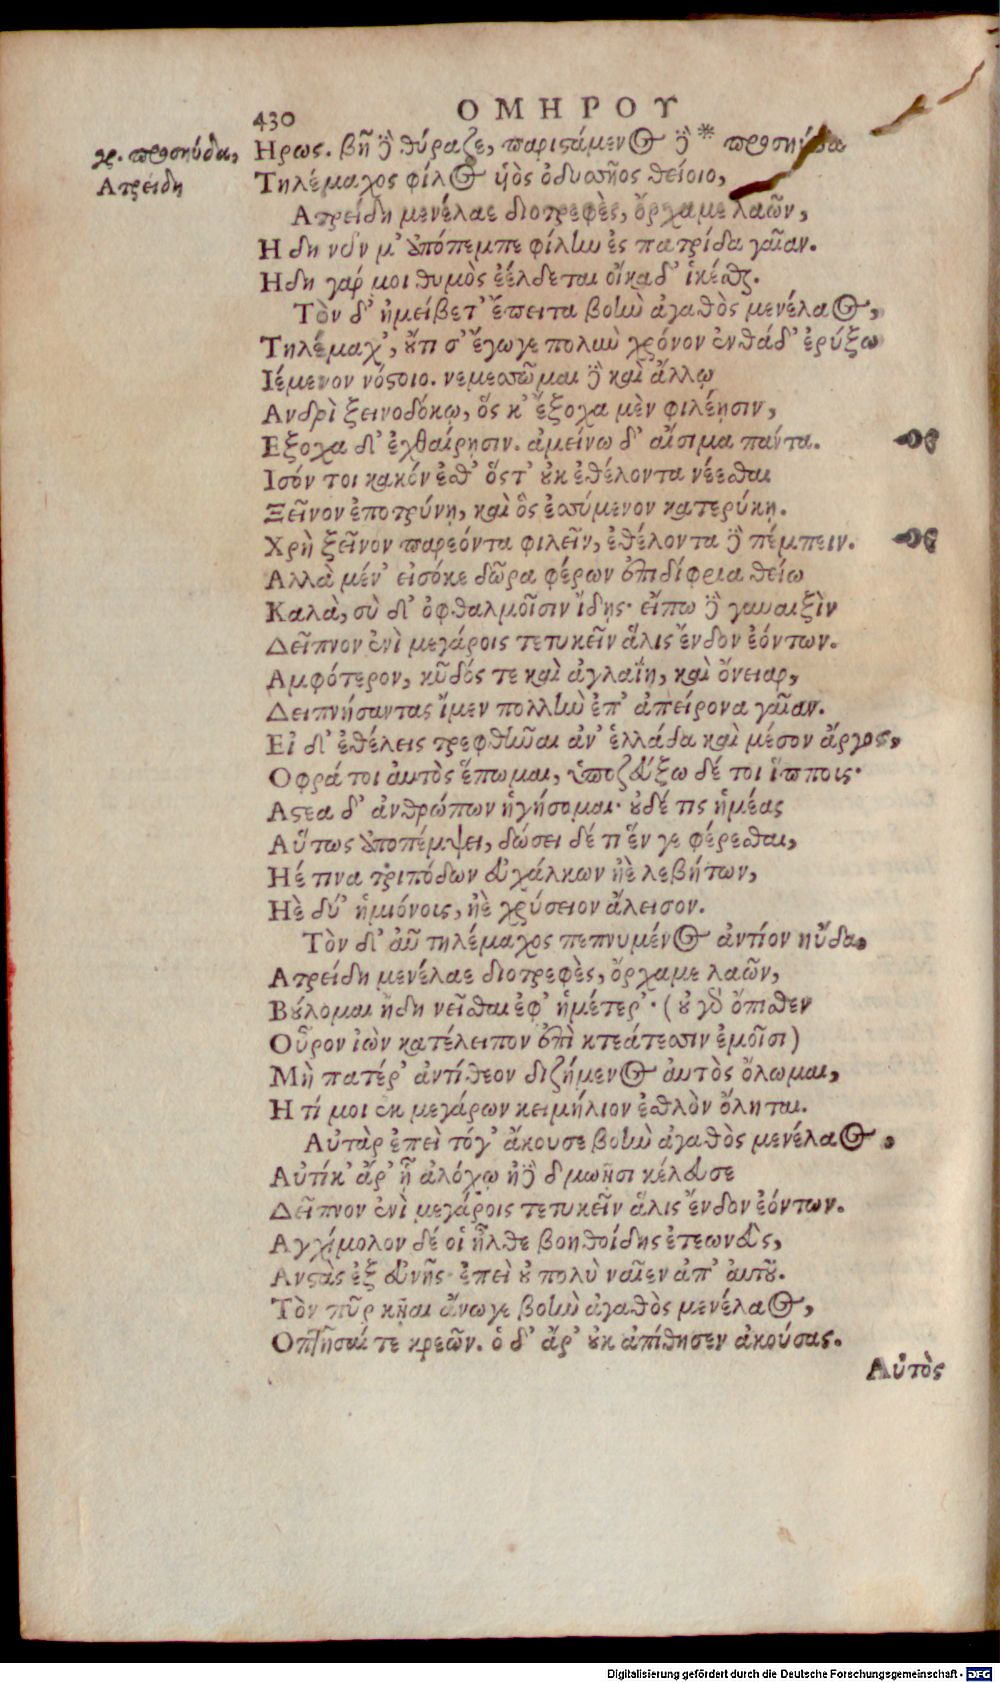 430 ΟΜΗΡΟΥ
γρ. προσηύδα,
Ατρείδη
Ηρως. βῆ δὲ θύραζε, παριστάμενος δὲ * προσηύδα
Τηλέμαχος φίλος υἱὸς ὀδυσσῆος θείοιο,
Ατρείδη μενέλαε διοτρεφὲς, ὄρχαμε λαῶν,
Η δη νῦν μ' ἀπόπεμπε φίλην ἐς πατρίδα γαῖαν.
Ηδη γάρ μοι θυμὸς ἐέλδεται οἴκαδ' ἱκέσθαι.
Τὸν δ' ἠμείβετ' ἔπειτα βοὴν ἀγαθὸς μενέλαος,
Τηλέμαχ', οὔτι σ' ἔγωγε πολὺν χρόνον ἐνθάδ' ἐρύξω
Ιέμενον νόστοιο. νεμεσσῶμαι δὲ καὶ ἄλλῳ
Ανδρὶ ξεινοδόκῳ, ὅς κ' ἔξοχα μὲν φιλέῃσιν,
Εξοχα δ' ἐχθαίρῃσιν. ἀμείνω δ' αἴσιμα πάντα.
Ισόν τοι κακόν ἐσθ' ὅς τ' οὐκ ἐθέλοντα νέεσθαι
Ξεῖνον ἐποτρύνῃ, καὶ ὃς ἐσσύμενον κατερύκῃ.
Χρὴ ξεῖνον παρεόντα φιλεῖν, ἐθέλοντα δὲ πέμπειν.
Αλλὰ μέν' εἰσόκε δῶρα φέρων ἐπιδίφρια θείω
Καλὰ, σὺ δ' ὀφθαλμοῖσιν ἴδῃς· εἴπω δὲ γυναιξὶν
Δεῖπνον ἐνὶ μεγάροις τετυκεῖν ἅλις ἔνδον ἐόντων.
Αμφότερον, κῦδός τε καὶ ἀγλαΐη, καὶ ὄνειαρ,
Δειπνήσαντας ἴμεν πολλὴν ἐπ' ἀπείρονα γαῖαν.
Εἰ δ' ἐθέλεις τρεφθῆναι ἀν' ἑλλάδα καὶ μέσον ἄργος,
Οφρά τοι αὐτὸς ἕπωμαι, ὑποζεύξω δέ τοι ἵππους·
Αστεα δ' ἀνθρώπων ἡγήσομαι· οὐδέ τις ἡμέας
Αὔτως ἀποπέμψει, δώσει δέ τι ἕν γε φέρεσθαι,
Ηέ τινα τριπόδων εὐχάλκων ἠὲ λεβήτων,
Ηὲ δύ' ἡμιόνοις, ἠὲ χρύσειον ἄλεισον.
Τὸν δ' αὖ τηλέμαχος πεπνυμένος ἀντίον ηὔδα,
Ατρείδη μενέλαε διοτρεφὲς, ὄρχαμε λαῶν,
Βούλομαι ἤδη νεῖσθαι ἐφ' ἡμέτερ'· (οὐ γὰρ ὄπισθεν
Οὖρον ἰὼν κατέλειπον ἐπὶ κτεάτεσσιν ἐμοῖσι)
Μὴ πατέρ' ἀντίθεον διζήμενος αὐτὸς ὄλωμαι,
Η τί μοι ἐκ μεγάρων κειμήλιον ἐσθλὸν ὄληται.
Αὐτὰρ ἐπεὶ τόγ' ἄκουσε βοὴν ἀγαθὸς μενέλαος,
Αὐτίκ' ἄρ' ᾗ ἀλόχῳ ἠδὲ δμωῇσι κέλευσε
Δεῖπνον ἐνὶ μεγάροις τετυκεῖν ἅλις ἔνδον ἐόντων.
Αγχίμολον δέ οἱ ἦλθε βοηθοίδης ἐτεωνεὺς,
Ανστὰς ἐξ εὐνῆς· ἐπεὶ οὐ πολὺ ναῖεν ἀπ' αὐτοῦ.
Τὸν πῦρ κῆαι ἄνωγε βοὴν ἀγαθὸς μενέλαος,
Οπτῆσαί τε κρεῶν. ὁ δ' ἄρ' οὐκ ἀπίθησεν ἀκούσας.
Αὐτὸς
Digitalisierung gefördert durch die Deutsche Forschungsgemeinschaft - DFG